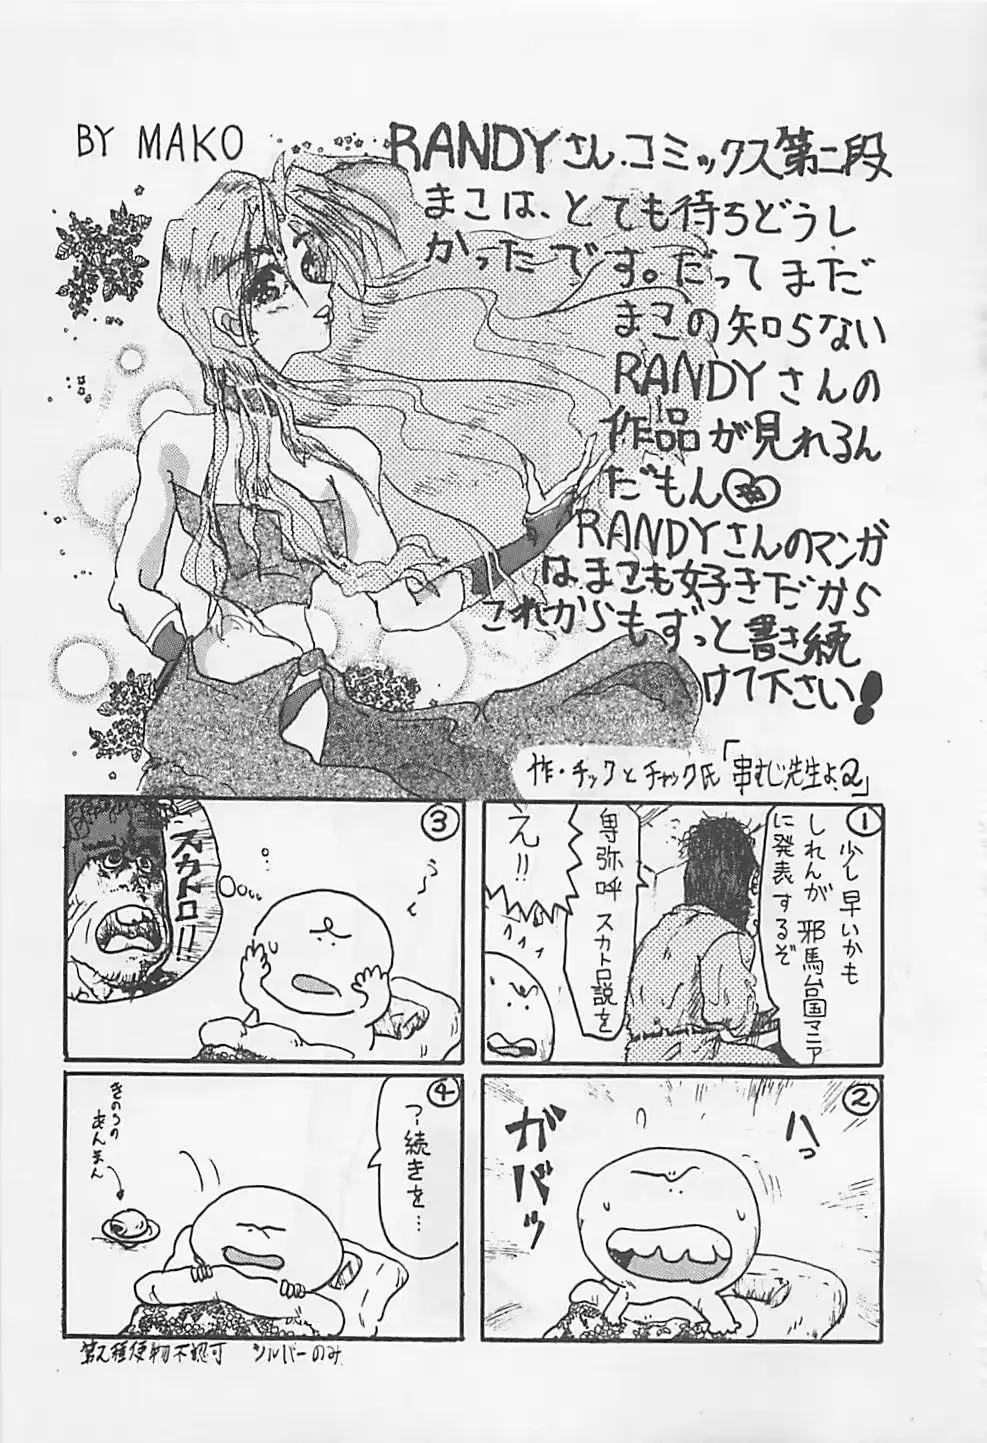 BY MAKO
RANDYさん.コミックス第二段
まこは、とても待ちどうし
かったです。だってまだ
まこの知らない
RANDYさんの
作品が見れるん
だもん
RANDYさんのマンガ
はまこも好きだから
これからもずっと書き続
けて下さい!
作・チックとチャック氏「串むじ先生よ2」
①
少し早いかも
しれんが邪馬台国マニア
に発表するぞ
卑弥呼スカトロ説を
え!!
②
ハっ
ガバッ
③
う〜
スカトロ!!
④
〜続きを…
きのうの
あんまん
シルバーのみ